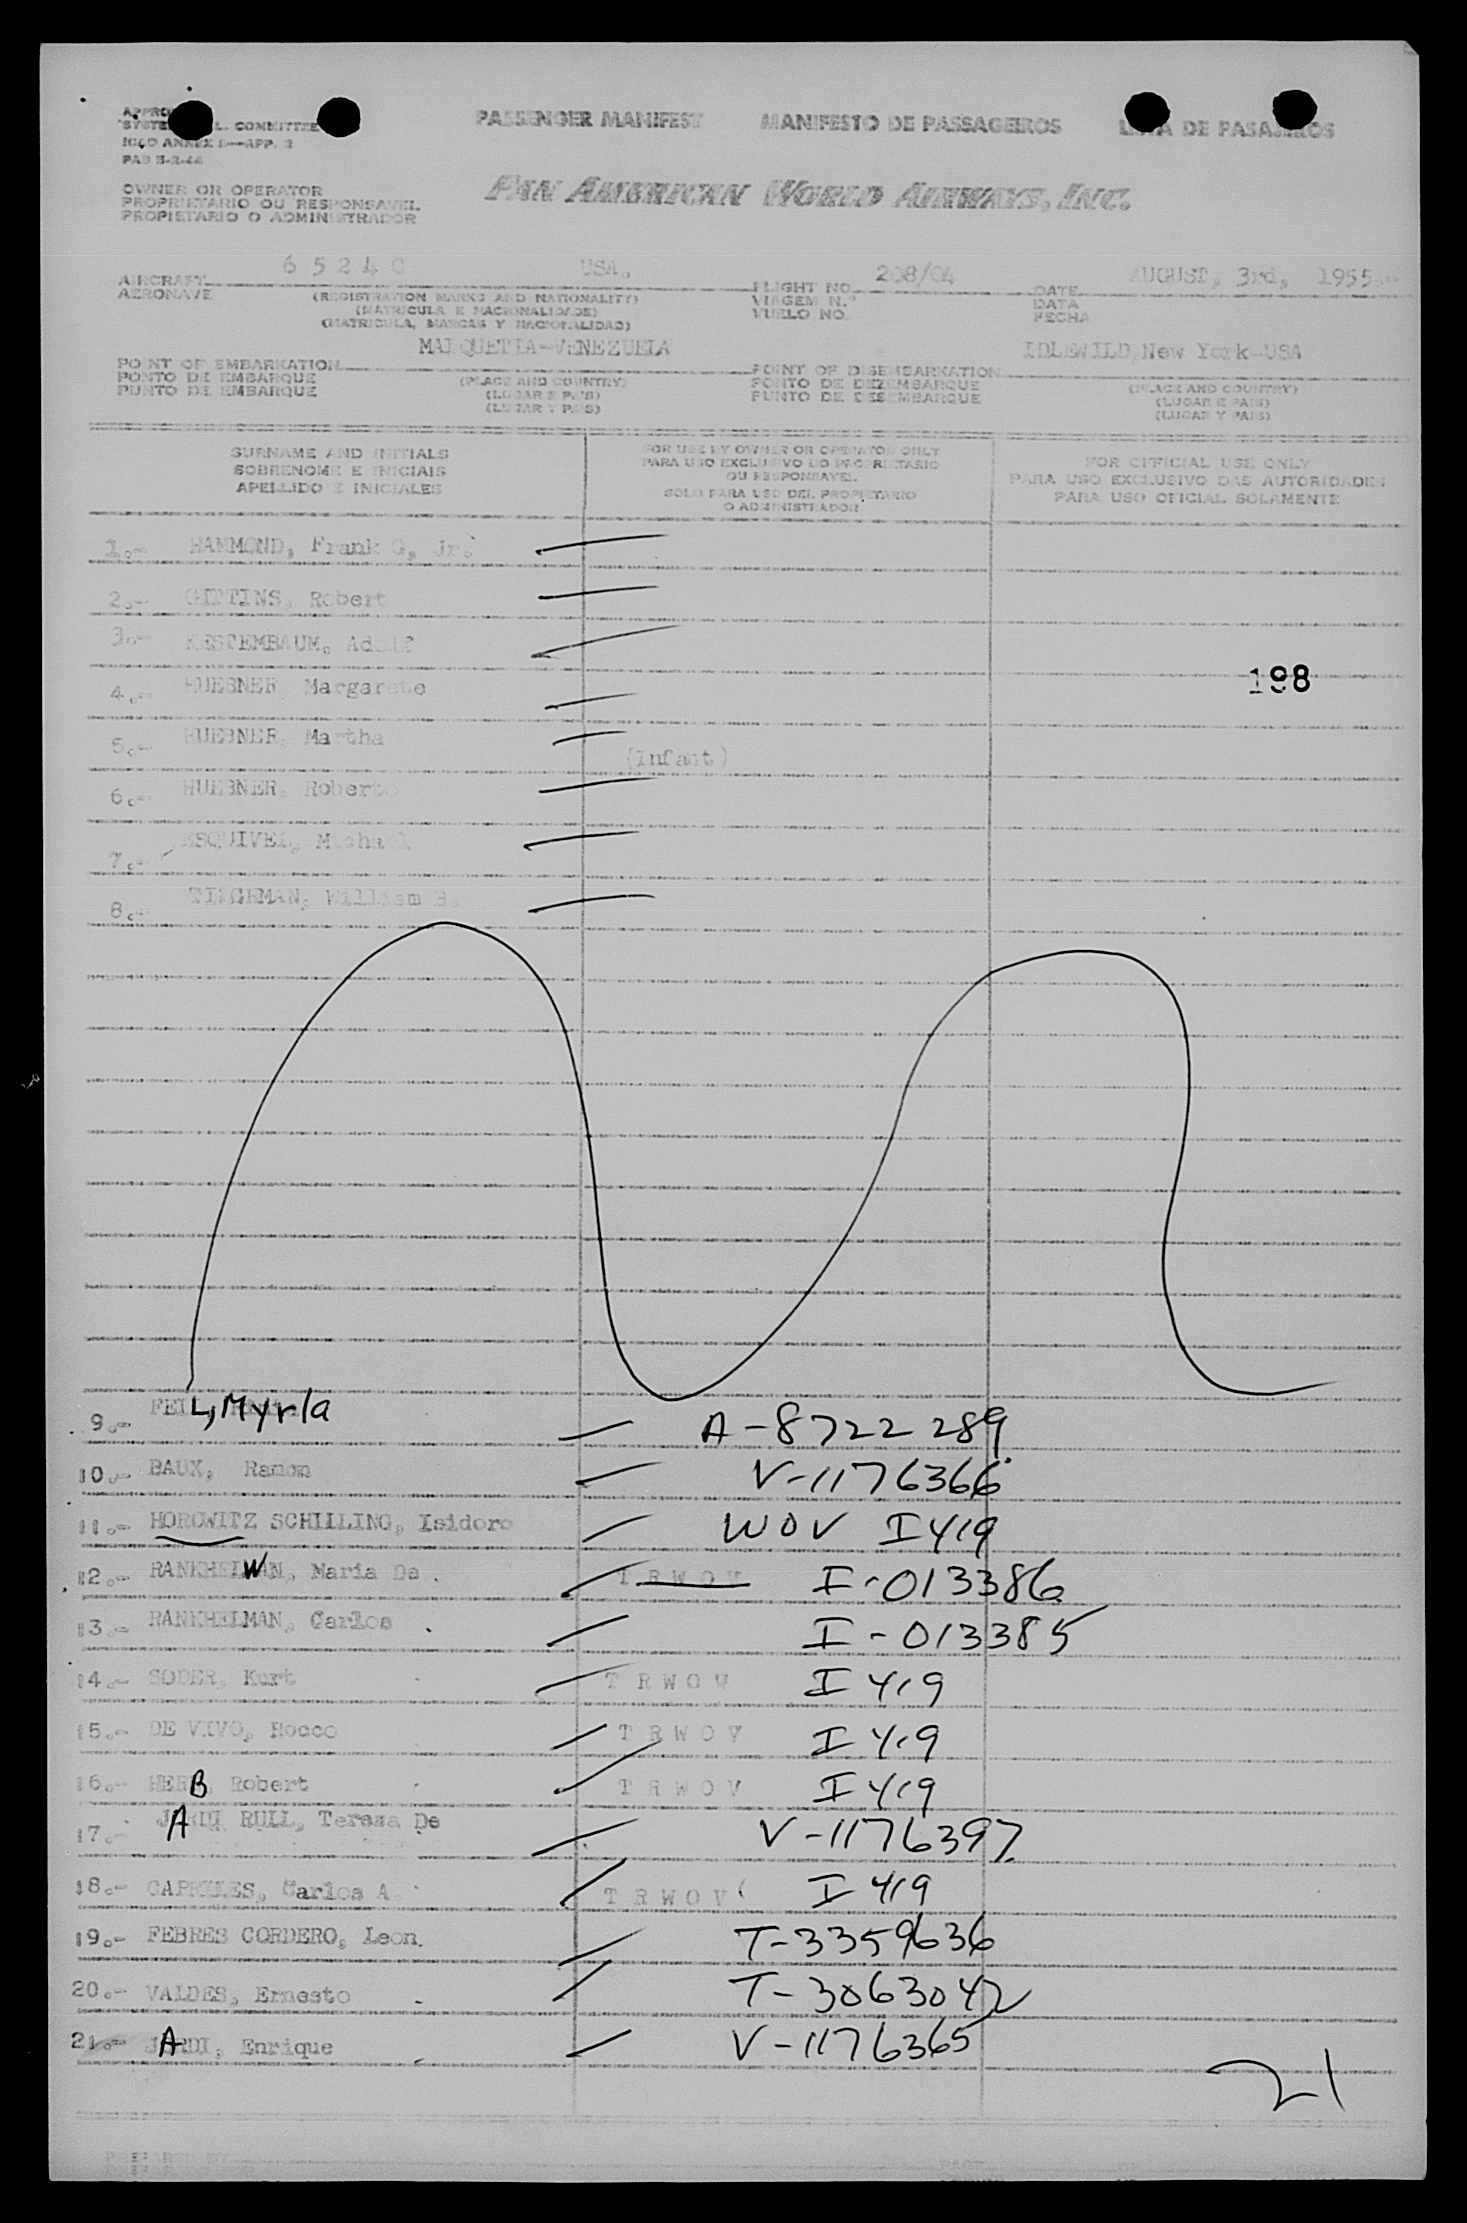 PASSENGER MANIFEST MANIFESTO DE PASSAGEIROS LISTA DE PASAJEROS
COMMITTEE
ICAO ANNEX 9—APP. 2
OWNER OR OPERATOR
PROPRIETARIO OU RESPONSAVEL
PROPIETARIO O ADMINISTRADOR
PAN AMERICAN WORLD AIRWAYS, INC.
AIRCRAFT 6 5 2 4 C USA. FLIGHT NO. 208/04 DATE AUGUST, 3rd, 1955.-
AERONAVE (REGISTRATION MARKS AND NATIONALITY) VIAGEM N.º DATA
(MATRICULA E NACIONALIDADE) VUELO NO. FECHA
(MATRICULA, MARCAS Y NACIONALIDAD)
MAIQUETIA-VENEZUELA IDLEWILD, New York-USA
POINT OF EMBARKATION POINT OF DISEMBARKATION
PONTO DE EMBARQUE (PLACE AND COUNTRY) PONTO DE DEZEMBARQUE (PLACE AND COUNTRY)
PUNTO DE EMBARQUE (LUGAR E PAIS) PUNTO DE DESEMBARQUE (LUGAR E PAIS)
(LUGAR Y PAIS) (LUGAR Y PAIS)
SURNAME AND INITIALS FOR USE BY OWNER OR OPERATOR ONLY FOR OFFICIAL USE ONLY
SOBRENOME E INICIAIS PARA USO EXCLUSIVO DO PROPRIETARIO PARA USO EXCLUSIVO DAS AUTORIDADES
OU RESPONSAVEL
APELLIDO E INICIALES SOLO PARA USO DEL PROPIETARIO PARA USO OFICIAL SOLAMENTE
O ADMINISTRADOR
1.- HAMMOND, Frank G, Jr.
2.- GITTINS, Robert
3.- KESTEMBAUM, Adolf
198
4.- HUEBNER, Margarete
5.- HUEBNER, Martha (Infant)
6.- HUEBNER, Roberto
7.- ESQUIVEL, Michael
8.- TINGHMAN, William
9.- FEIL, Myrla A-8722289
10.- BAUX, Ramon V-1176366
11.- HOROWITZ SCHILLING, Isidoro WOV I 419
12.- RANKHELWAN, Maria De . T R W O V I-013386
13.- RANKHELMAN, Carlos . I-013385
14.- SODER, Kurt T R W O V I 419
15.- DE VIVO, Rocco T R W O V I 419
16.- HERB, Robert T R W O V I 419
17.- JARDI RULL, Teresa De V-1176397
18.- CAPRILES, Carlos A. T R W O V I 419
19.- FEBRES CORDERO, Leon. T-3359636
20.- VALDES, Ernesto T-3063042
21.- JARDI, Enrique V-1176365
21